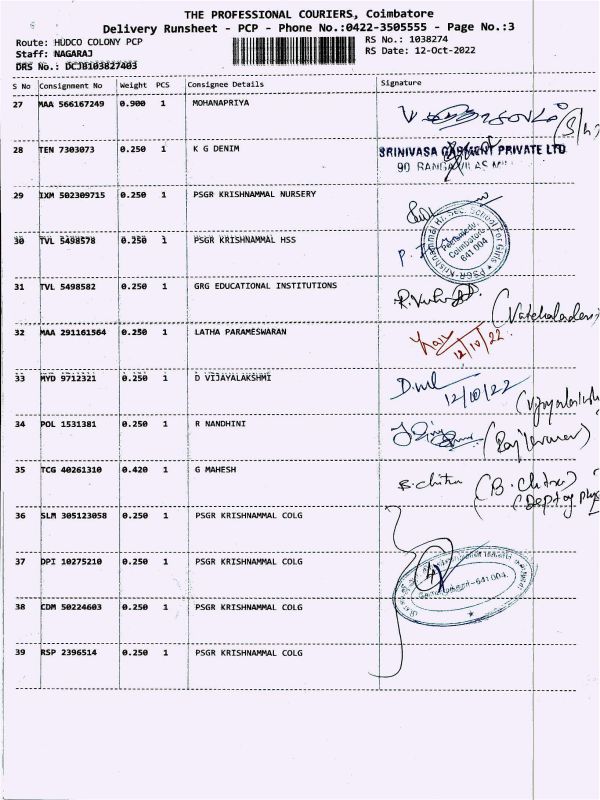 THE PROFESSIONAL COURIERS, Coimbatore
Delivery Runsheet - PCP - Phone No.:0422-3505555 - Page No.:3
Route: HUDCO COLONY PCP
RS No.: 1038274
Staff: NAGARAJ
RS Date: 12-Oct-2022
DRS No.: DCJB103827403
S No Consignment No Weight PCS Consignee Details Signature
27 MAA 566167249 0.900 1 MOHANAPRIYA
28 TEN 7303073 0.250 1 K G DENIM
SRINIVASA GARMENT PRIVATE LTD
90 RANGAVILAS
29 IXM 502309715 0.250 1 PSGR KRISHNAMMAL NURSERY
30 TVL 5498578 0.250 1 PSGR KRISHNAMMAL HSS
PSGR-Krishnammal Hr. Sec. School For Girls
Peelamedu,
Coimbatore
641 004
31 TVL 5498582 0.250 1 GRG EDUCATIONAL INSTITUTIONS
32 MAA 291161564 0.250 1 LATHA PARAMESWARAN
12/10/22
33 MYD 9712321 0.250 1 D VIJAYALAKSHMI
12/10/22
34 POL 1531381 0.250 1 R NANDHINI
35 TCG 40261310 0.420 1 G MAHESH B.chitra (B. Chitra)
(Dept of Phy
36 SLM 305123058 0.250 1 PSGR KRISHNAMMAL COLG
37 DPI 10275210 0.250 1 PSGR KRISHNAMMAL COLG
4
-641 004.
38 CDM 50224603 0.250 1 PSGR KRISHNAMMAL COLG
39 RSP 2396514 0.250 1 PSGR KRISHNAMMAL COLG